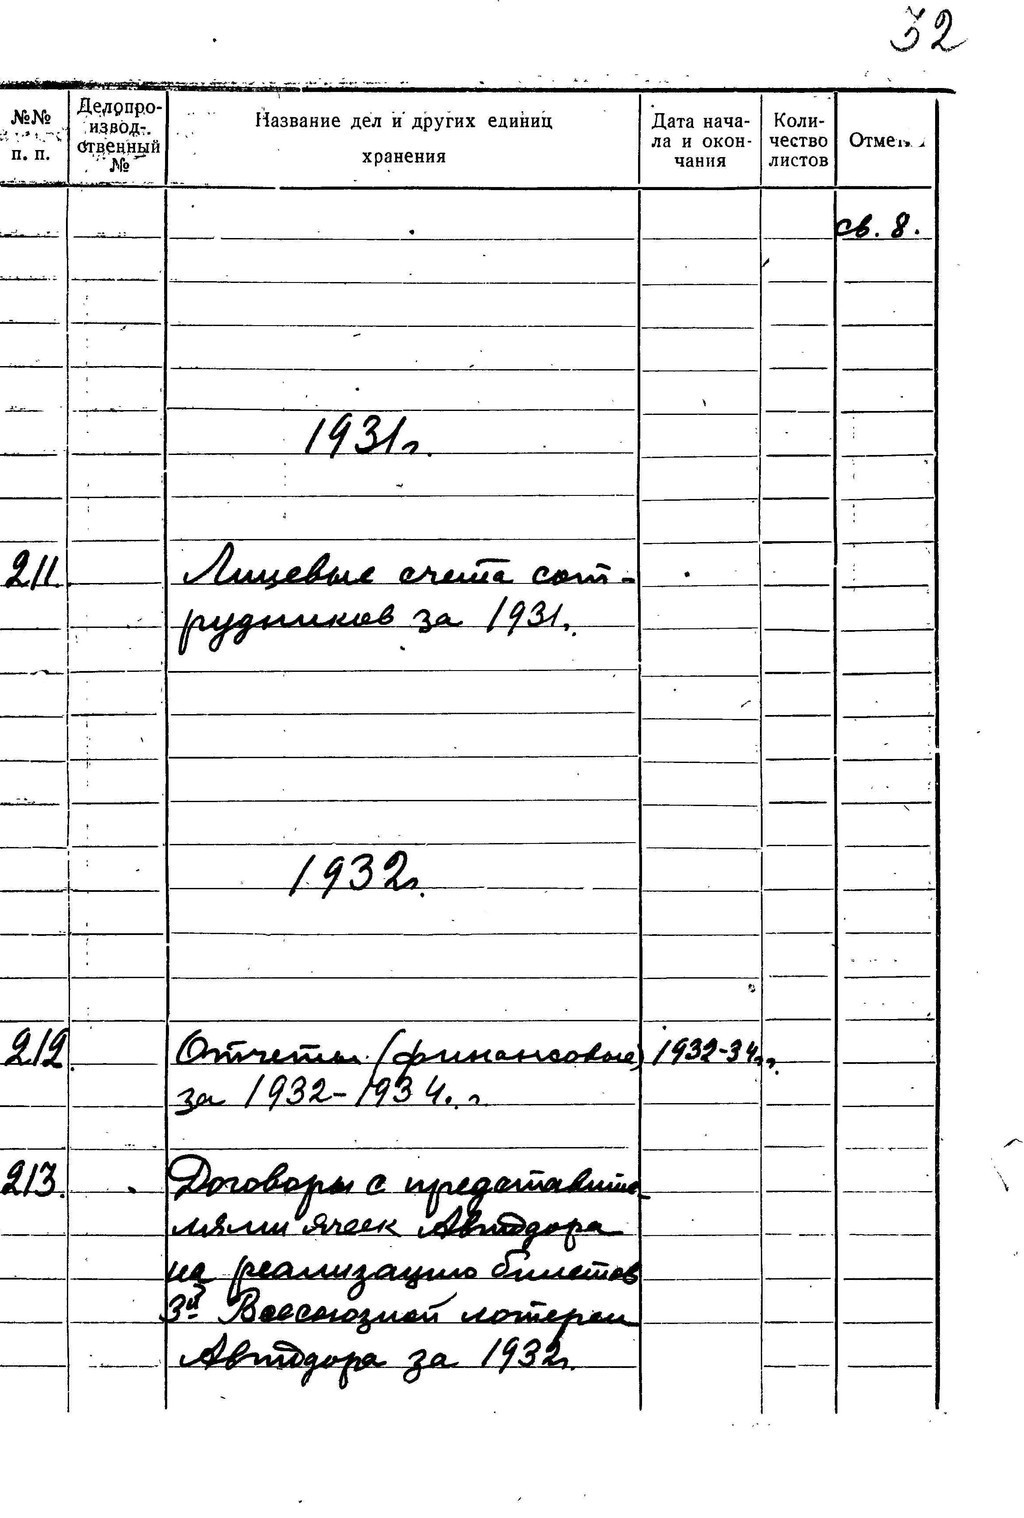 32
№№ п. п.
Делопро-
извод-
ственный
№
Название дел и других единиц
хранения
Дата нача-
ла и окон-
чания
Коли-
чество
листов
Отмет
св. 8.
1931г.
211. Лицевые счета сот-
рудников за 1931г.
1932г.
212. Отчеты (финансовые) 1932-34г.г.
за 1932-1934г.г.
213. Договоры с представите-
лями ячеек Автодора
на реализацию билетов
3й Всесоюзной лотереи
Автодора за 1932г.